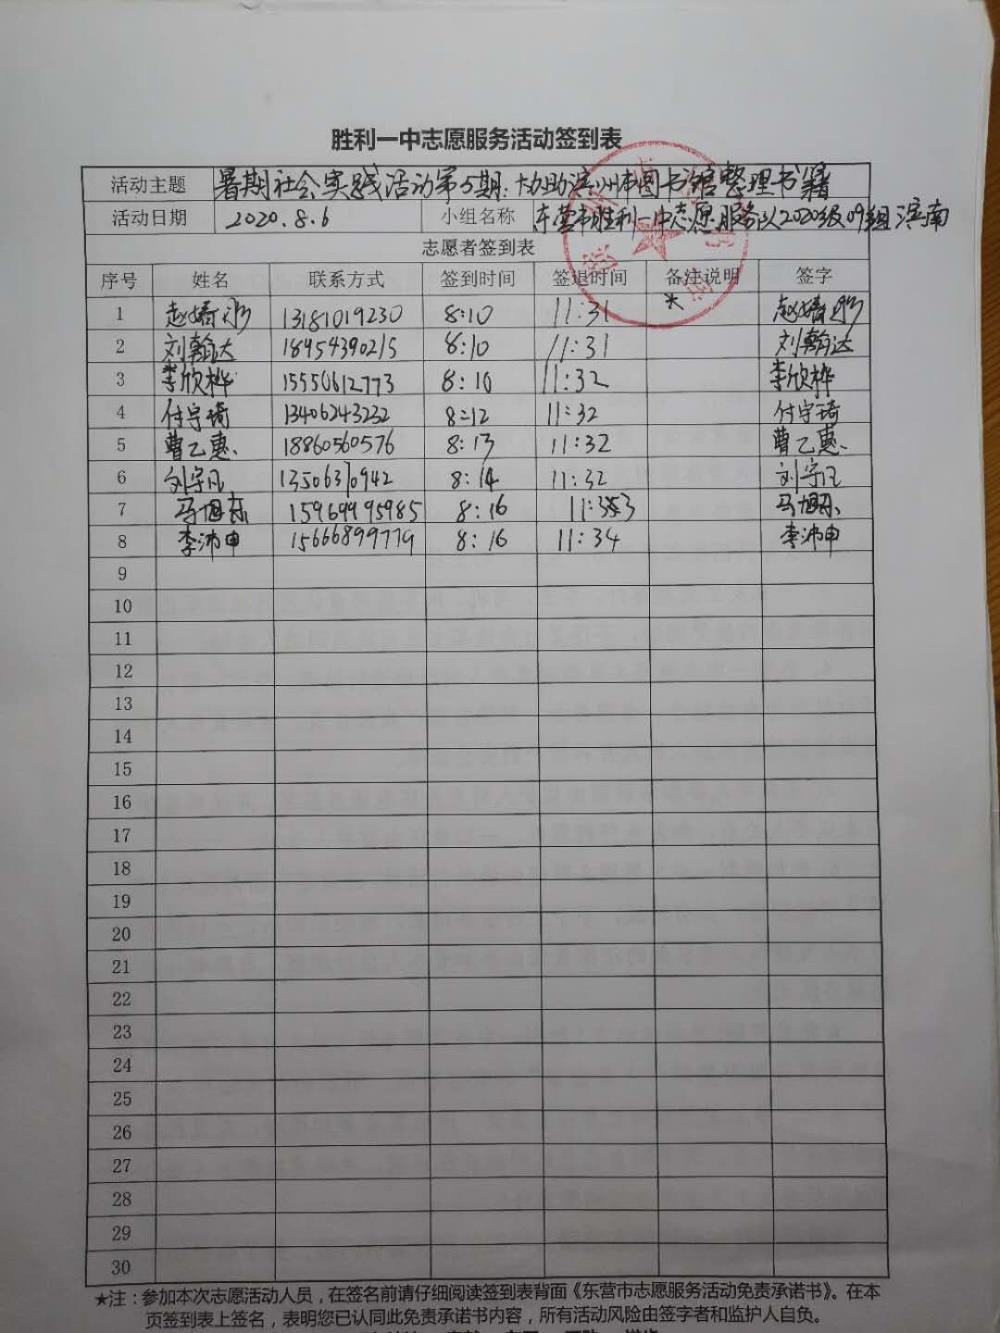 胜利一中志愿服务活动签到表
活动主题 暑期社会实践活动第5期:协助滨州市图书馆整理书籍
活动日期 2020.8.6 小组名称 东营市胜利一中志愿服务队2020级09组滨南
志愿者签到表
序号 姓名 联系方式 签到时间 签退时间 备注说明 签字
1 赵婧彤 13181019230 8:10 11:31 赵婧彤
2 刘翰达 18954390215 8:10 11:31 刘翰达
3 李欣桦 15550612773 8:10 11:32 李欣桦
4 付宇琦 13406243232 8:12 11:32 付宇琦
5 曹乙惠 18860560576 8:13 11:32 曹乙惠
6 刘宇凡 13506370942 8:14 11:32 刘宇凡
7 马旭东 15969995985 8:16 马旭东
8 李沛申 15666899779 8:16 11:34 李沛申
9
10
11
12
13
14
15
16
17
18
19
20
21
22
23
24
25
26
27
28
29
30
★注:参加本次志愿活动人员,在签名前请仔细阅读签到表背面《东营市志愿服务活动免责承诺书》。在本
页签到表上签名,表明您已认同此免责承诺书内容,所有活动风险由签字者和监护人自负。